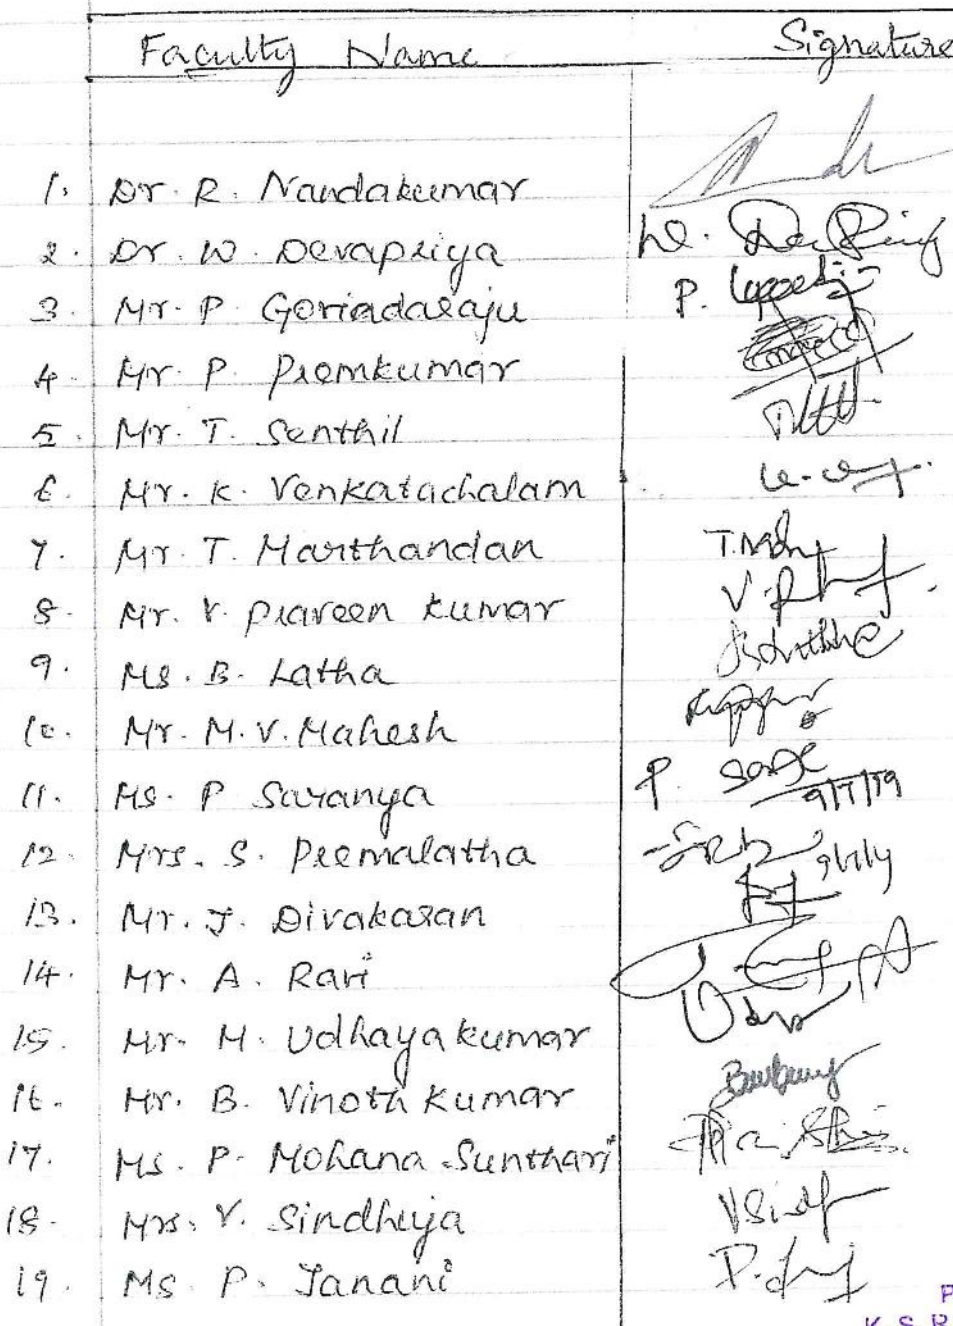 Faculty Name Signature
1. Dr. R. Nandakumar
2. Dr. W. Devapriya W.
3. Mr. P. Govindaraju P.
4. Mr. P. Premkumar
5. Mr. T. Senthil
6. Mr. K. Venkatachalam
7. Mr. T. Marthandan
8. Mr. V. Praveen Kumar V.
9. Ms. B. Latha
10. Mr. M. V. Mahesh
11. Ms. P Saranya P.
9/7/19
12. Mrs. S. Premalatha
13. Mr. J. Divakaran
14. Mr. A. Ravi
15. Mr. M. Udhayakumar
16. Mr. B. Vinoth Kumar
17. Ms. P. Mohana Sunthari
18. Mrs. V. Sindhuja
19. Ms. P. Janani
P
K S R